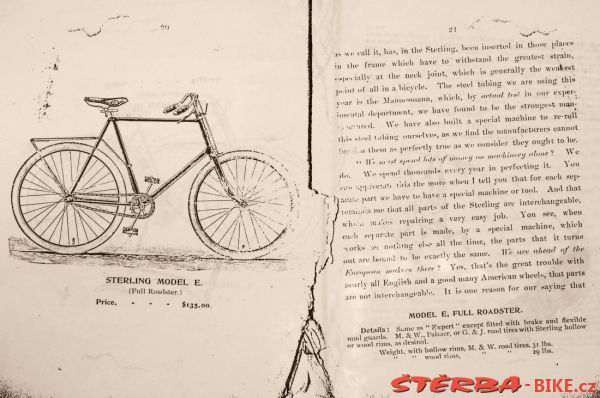 20
STERLING MODEL E.
(Full Roadster.)
Price, - - - $135.00.
21
as we call it, has, in the Sterling, been inserted in those places
in the frame which have to withstand the greatest strain,
especially at the neck joint, which is generally the weakest
point of all in a bicycle. The steel tubing we are using this
year is the Mannesmann, which, by actual test in our exper-
imental department, we have found to be the strongest man-
We have also built a special machine to re-roll
this steel tubing ourselves, as we find the manufacturers cannot
them as perfectly true as we consider they ought to be.
" We must spend lots of money on machinery alone? We
do. We spend thousands every year in perfecting it. You
can appreciate this the more when I tell you that for each sep-
arate part we have to have a special machine or tool. And that
me that all parts of the Sterling are interchangeable,
which makes repairing a very easy job. You see, when
each separate part is made, by a special machine, which
works on nothing else all the time, the parts that it turns
out are bound to be exactly the same. We are ahead of the
European makers there? Yes, that's the great trouble with
nearly all English and a good many American wheels, that parts
are not interchangeable. It is one reason for our saying that
MODEL E, FULL ROADSTER.
Details: Same as "Expert" except fitted with brake and flexible
mud guards. M. & W., Palmer, or G. & J. road tires with Sterling hollow
or wood rims, as desired.
Weight, with hollow rims, M. & W. road tires, 31 lbs.
" " wood rims, " " 29 lbs.
ŠTĚRBA-BIKE.cz